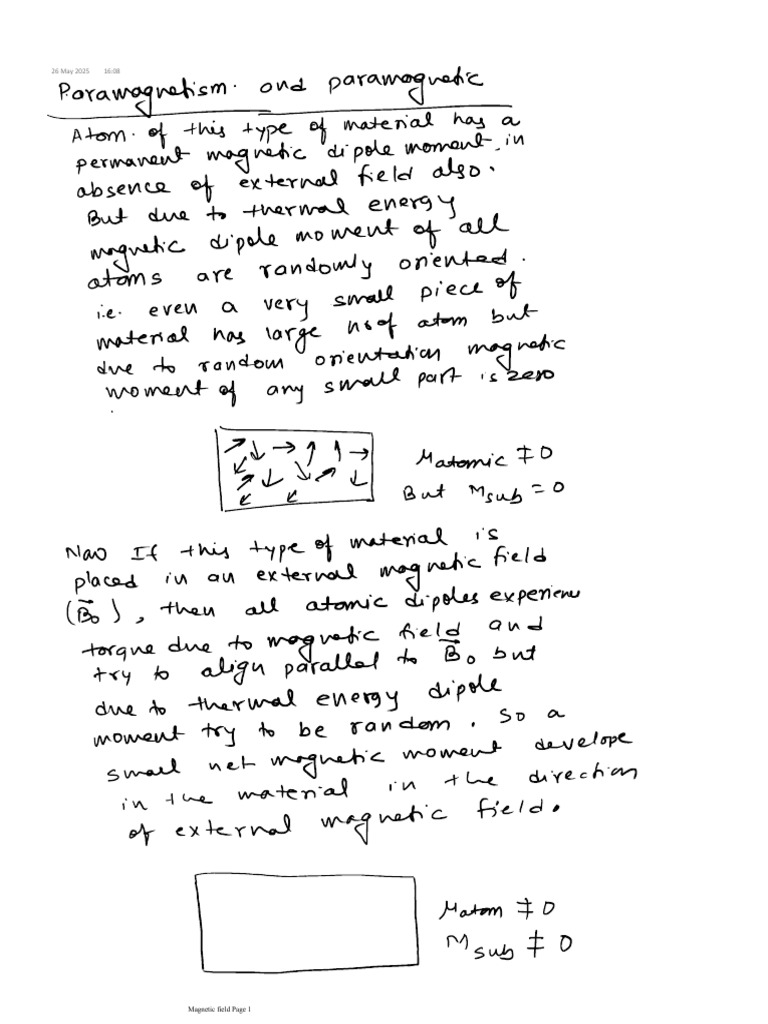 26 May 2025 16:08
Paramagnetism. and paramagnetic
Atom. of this type of material has a
permanent magnetic dipole moment, in
absence of external field also.
But due to thermal energy
magnetic dipole moment of all
atoms are randomly oriented.
i.e. even a very small piece of
material has large no of atom but
due to random orientation magnetic
moment of any small part is zero
Matomic ≠ 0
But Msub = 0
Now If this type of material is
placed in an external magnetic field
(B⃗₀), then all atomic dipoles experience
torque due to magnetic field and
try to align parallel to B⃗₀ but
due to thermal energy dipole
moment try to be random. So a
small net magnetic moment develope
in the material in the direction
of external magnetic field.
Matom ≠ 0
Msub ≠ 0
Magnetic field Page 1